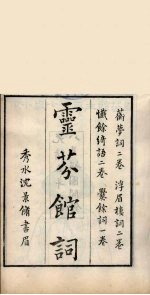 蘅夢詞二卷　浮眉樓詞二卷
懺餘綺語二卷　爨餘詞一卷
靈芬館詞
秀水沈景脩書眉